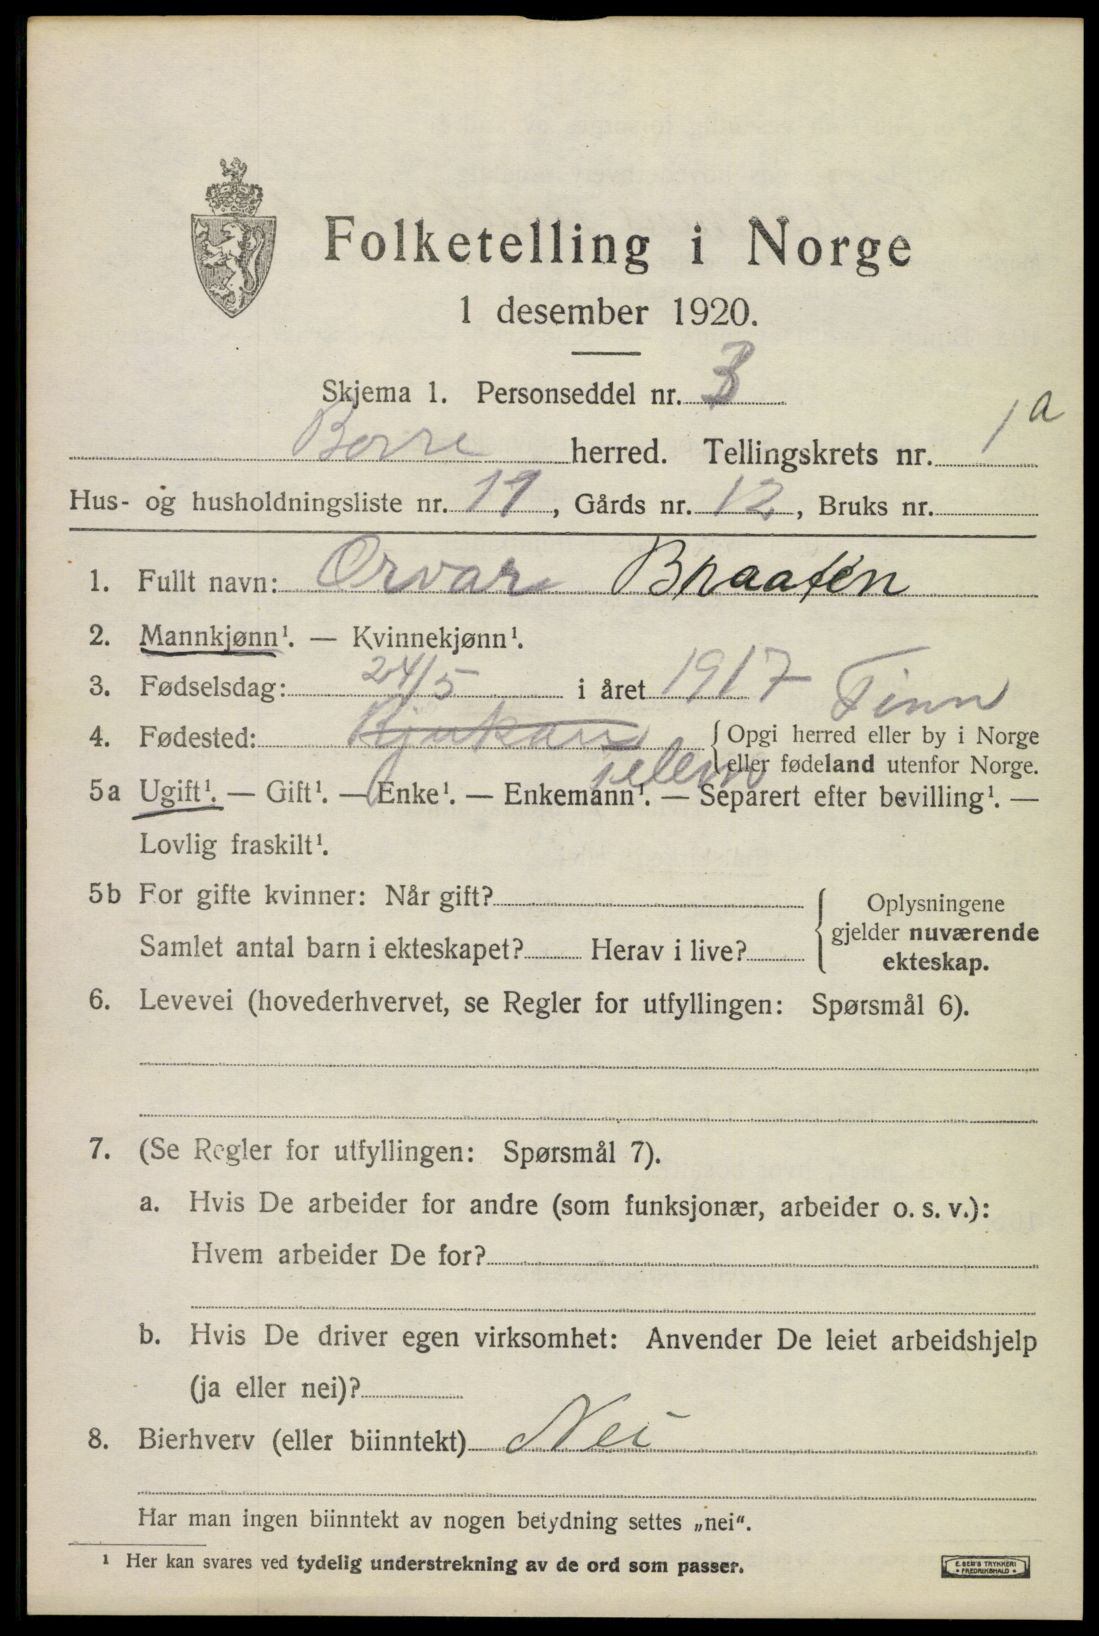 Folketelling i Norge
1 desember 1920.
Skjema 1. Personseddel nr. 3
Borre herred. Tellingskrets nr. 1 a
Hus- og husholdningsliste nr. 19, Gårds nr. 12, Bruks nr.
1. Fullt navn: Orvar Braaten
2. Mannkjønn¹. — Kvinnekjønn¹.
3. Fødselsdag: 24/5 i året 1917 Tinn
4. Fødested: Rjukan {Opgi herred eller by i Norge
telem eller fødeland utenfor Norge.
5a Ugift¹. — Gift¹. — Enke¹. — Enkemann¹. — Separert efter bevilling¹. —
Lovlig fraskilt¹.
5b For gifte kvinner: Når gift? { Oplysningene
gjelder nuværende
Samlet antal barn i ekteskapet? Herav i live?
ekteskap.
6. Levevei (hovederhvervet, se Regler for utfyllingen: Spørsmål 6).
7. (Se Regler for utfyllingen: Spørsmål 7).
a. Hvis De arbeider for andre (som funksjonær, arbeider o. s. v.):
Hvem arbeider De for?
b. Hvis De driver egen virksomhet: Anvender De leiet arbeidshjelp
(ja eller nei)?
8. Bierhverv (eller biinntekt) Nei
Har man ingen biinntekt av nogen betydning settes „nei“.
¹ Her kan svares ved tydelig understrekning av de ord som passer.
E. SEM'S TRYKKERI
• FREDRIKSHALD •